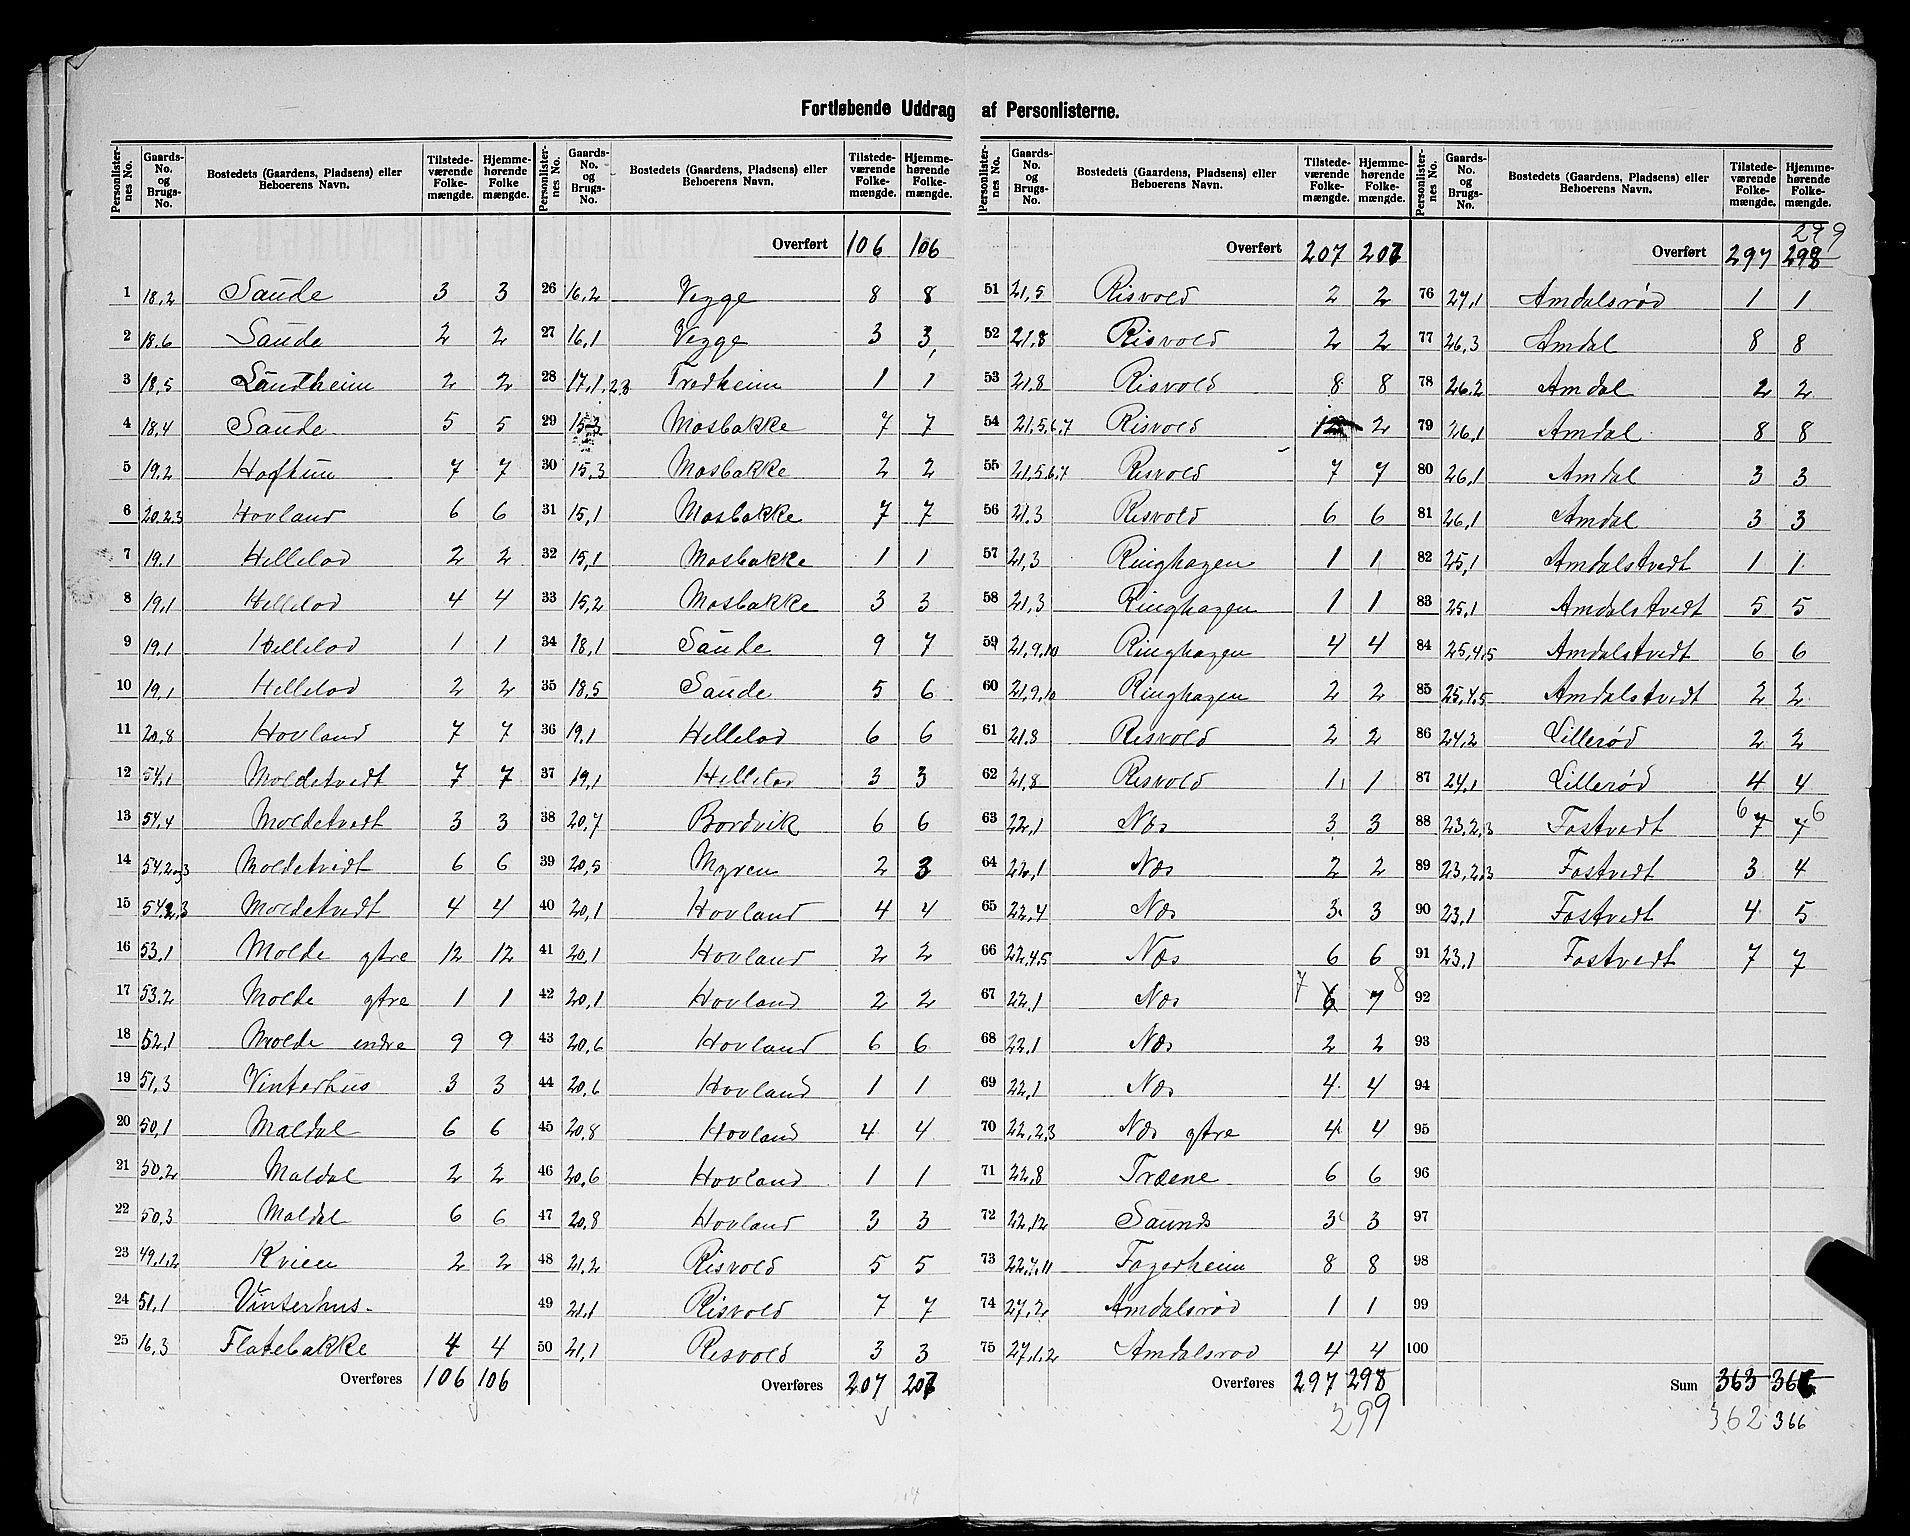 Fortløbende Uddrag af Personlisterne.
Personlister-nes No. | Gaards-No. og Brugs-No. | Bostedets (Gaardens, Pladsens) eller Beboerens Navn. | Tilstede-værende Folke-mængde. | Hjemme-hørende Folke mængde.
1 18,2 Saude 3 3
2 18.6 Saude 2 2
3 18,5 Sandheim 2 2
4 18,4 Saude 5 5
5 19.2 Haftun 7 7
6 20.2.3 Hovland 6 6
7 19.1 Hellelad 2 2
8 19,1 Hellelad 4 4
9 19,1 Hellelad 1 1
10 19,1 Hellelad 2 2
11 20,8 Hovland 7 7
12 54,1 Moldetvedt 7 7
13 54,4 Moldetvedt 3 3
14 54,2,3 Moldetvedt 6 6
15 54,2,3 Moldetvedt 4 4
16 53.1 Molde ytre 12 12
17 53.2 Molde ytre 1 1
18 52,1 Molde indre 9 9
19 51,3 Vinterhus 3 3
20 50,1 Maldal 6 6
21 50,2 Maldal 2 2
22 50,3 Maldal 6 6
23 49,1,2 Kvien 2 2
24 51,1 Vinterhus.
25 16,3 Flatebakke 4 4
Overføres 106 106
Personlister-nes No. | Gaards-No. og Brugs-No. | Bostedets (Gaardens, Pladsens) eller Beboerens Navn. | Tilstede-værende Folke-mængde. | Hjemme-hørende Folke-mængde.
Overført 106 106
26 16,2 Vegge 8 8
27 16,1 Vegge 3 3
28 17,1,2,3 Tredheim 1 1
29 15,3 Mosbakke 7 7
30 15,3 Mosbakke 2 2
31 15,1 Mosbakke 7 7
32 15,1 Mosbakke 1 1
33 15,2 Mosbakke 3 3
34 18,1 Saude 9 7
35 18,5 Saude 5 6
36 19,1 Hellelad 6 6
37 19,1 Hellelad 3 3
38 20,7 Bordvik 6 6
39 20,5 Myren 2 3
40 20,1 Hovland 4 4
41 20,1 Hovland 2 2
42 20,1 Hovland 2 2
43 20,6 Hovland 6 6
44 20,6 Hovland 1 1
45 20,8 Hovland 4 4
46 20,6 Hovland 1 1
47 20,8 Hovland 3 3
48 21,2 Risvold 5 5
49 21,1 Risvold 7 7
50 21,1 Risvold 3 3
Overføres 207 207
Personlister-nes No. | Gaards-No. og Brugs-No. | Bostedets (Gaardens, Pladsens) eller Beboerens Navn. | Tilstede-værende Folke-mængde. | Hjemme-hørende Folke-mængde.
Overført 207 207
51 21,5 Risvold 2 2
52 21,8 Risvold 2 2
53 21,8 Risvold 8 8
54 21,5,6,7 Risvold 2
55 21,5,6,7 Risvold 7 7
56 21.3 Risvold 6 6
57 21,3 Ringhagen 1 1
58 21,3 Ringhagen 1 1
59 21,9,10 Ringhagen 4 4
60 21,9,10 Ringhagen 2 2
61 21,8 Risvold 2 2
62 21,8 Risvold 1 1
63 22,1 Næs 3 3
64 22,1 Næs 2 2
65 22,4 Næs 3 3
66 22,4,5 Næs 6 6
67 22,1 Næs 6 7 7 8
68 22,1 Næs 2 2
69 22,1 Næs 4 4
70 22,2,3 Næs ytre 4 4
71 22,8 Træene 6 6
72 22,12 Saunds 3 3
73 22,7,11 Fagerheim 8 8
74 27,2 Amdalsrød 1 1
75 27,1,2 Amdalsrod 4 4
Overføres 297 298
299
Personlister-nes No. | Gaards-No. og Brugs-No. | Bostedets (Gaardens, Pladsens) eller Beboerens Navn. | Tilstede-værende Folke-mængde. | Hjemme-hørende Folke-mængde.
299
Overført 297 298
76 27,1 Amdalsrød 1 1
77 26,3 Amdal 8 8
78 26,2 Amdal 2 2
79 26,1 Amdal 8 8
80 26,1 Amdal 3 3
81 26,1 Amdal 3 3
82 25,1 Amdalstvedt 1 1
83 25,1 Amdalstvedt 5 5
84 25,4,5 Amdalstvedt 6 6
85 25,4,5 Amdalstvedt 2 2
86 24,2 Lillerød 2 2
87 24,1 Lillerød 4 4
88 23,2,3 Fostvedt 6 7 7 6
89 23,2,3 Fostvedt 3 4
90 23,1 Fostvedt 4 5
91 23,1 Fostvedt 7 7
92
93
94
95
96
97
98
99
100
Sum 363 366
362 366